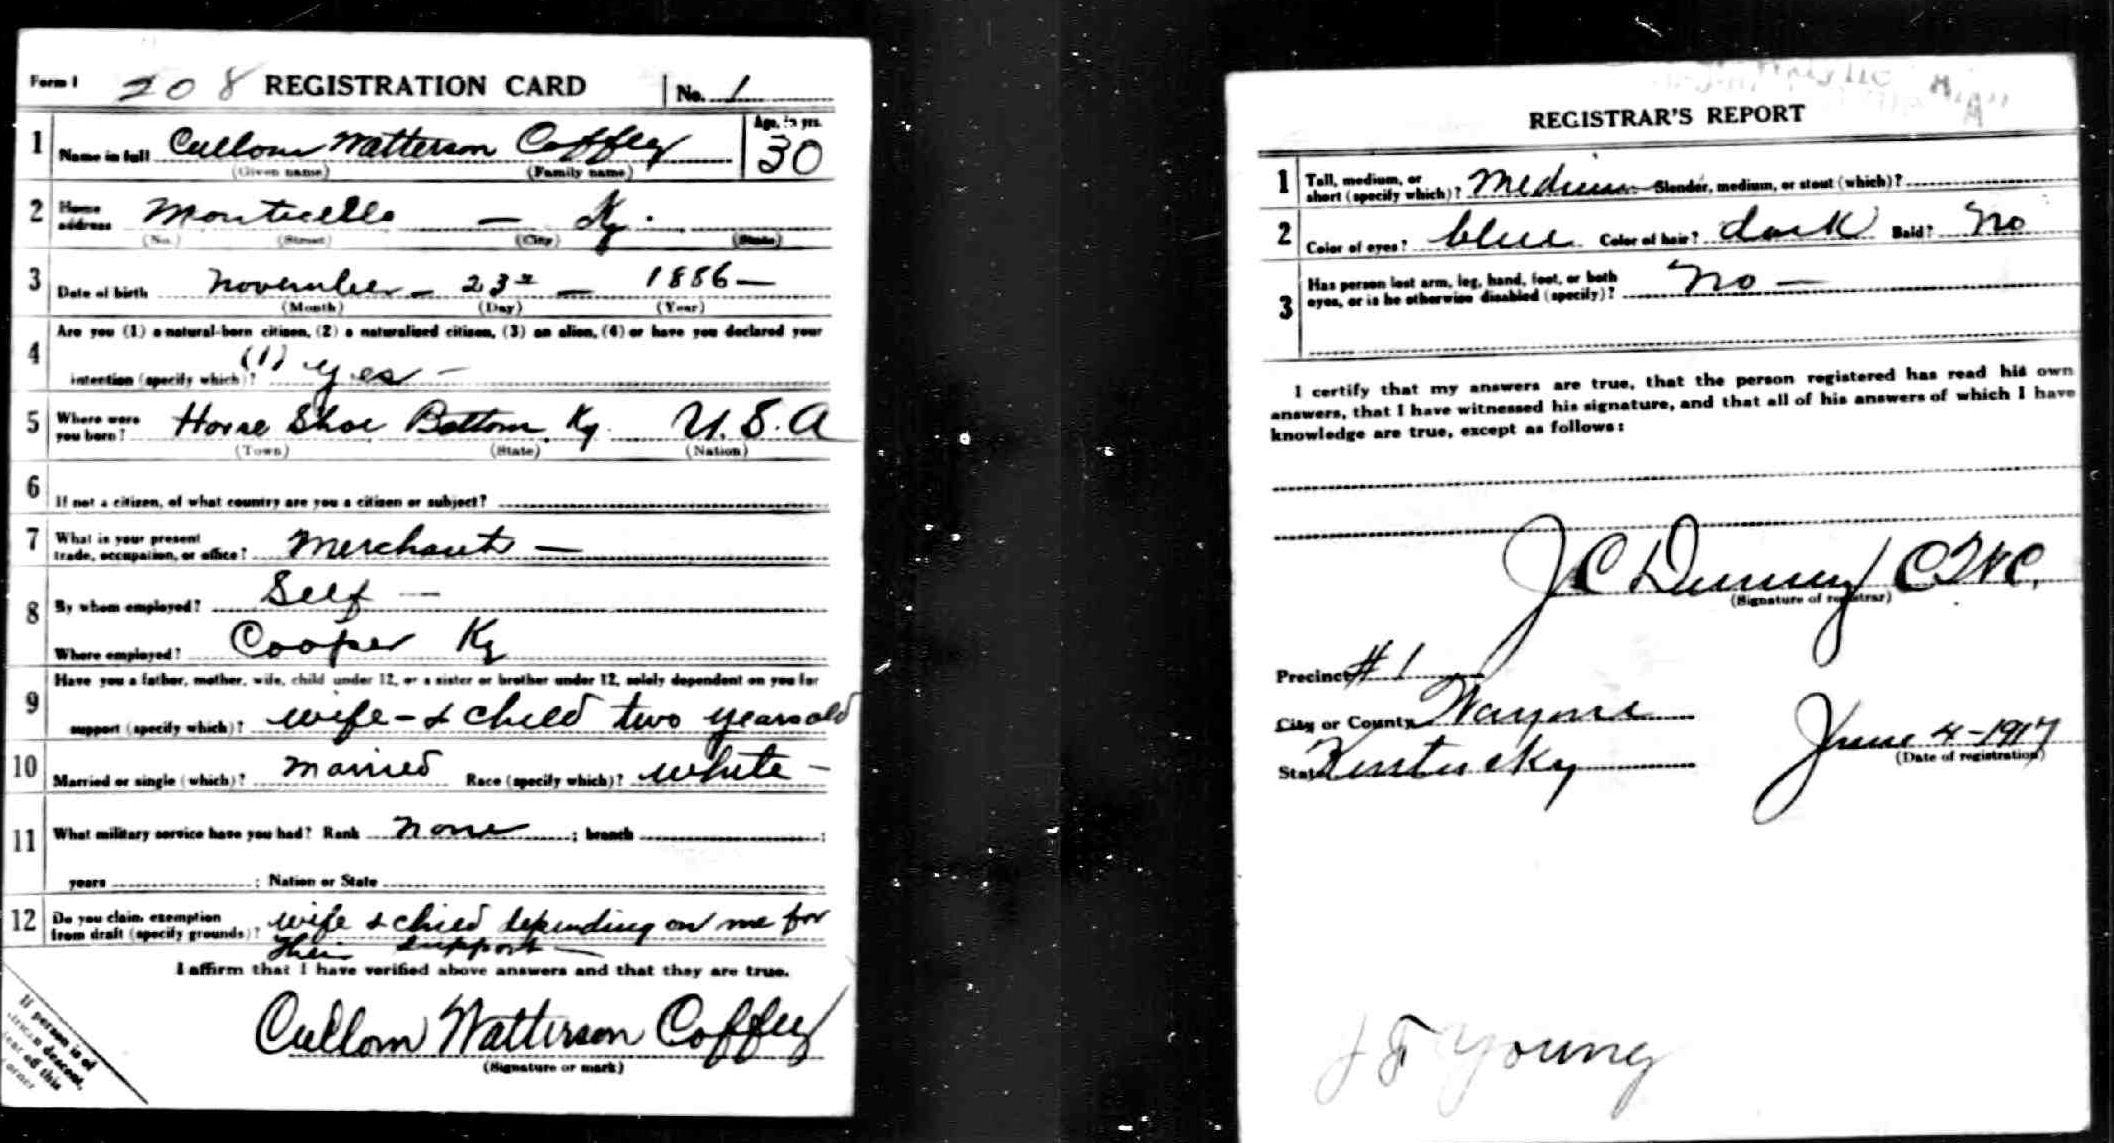 Form 1 208 REGISTRATION CARD No. 1
1 Name in full Cullom Watterson Coffey Age, in yrs. 30
(Given name) (Family name)
2 Home address Monticello — Ky.
(No.) (Street) (City) (State)
3 Date of birth November — 23rd — 1886 —
(Month) (Day) (Year)
4 Are you (1) a natural-born citizen, (2) a naturalized citizen, (3) an alien, (4) or have you declared your
intention (specify which)? (1) yes -
5 Where were you born? Horse Shoe Bottom Ky. U.S.A
(Town) (State) (Nation)
6 If not a citizen, of what country are you a citizen or subject?
7 What is your present trade, occupation, or office? Merchant —
8 By whom employed? Self —
Where employed? Cooper Ky
9 Have you a father, mother, wife, child under 12, or a sister or brother under 12, solely dependent on you for
support (specify which)? wife - & child two years old
10 Married or single (which)? married Race (specify which)? white -
11 What military service have you had? Rank none ; branch ;
years ; Nation or State
12 Do you claim exemption from draft (specify grounds)? wife & child depending on me for
their support —
I affirm that I have verified above answers and that they are true.
Cullom Watterson Coffey
(Signature or mark)
If person is of
African descent,
tear off this
corner
REGISTRAR'S REPORT
1 Tall, medium, or short (specify which)? Medium Slender, medium, or stout (which)?
2 Color of eyes? blue Color of hair? dark Bald? No
3 Has person lost arm, leg, hand, foot, or both
eyes, or is he otherwise disabled (specify)? No —
I certify that my answers are true, that the person registered has read his own
answers, that I have witnessed his signature, and that all of his answers of which I have
knowledge are true, except as follows:
J C
(Signature of registrar)
Precinct # 1
City or County Wayne
State Kentucky June 4 - 1917
(Date of registration)
J F Young